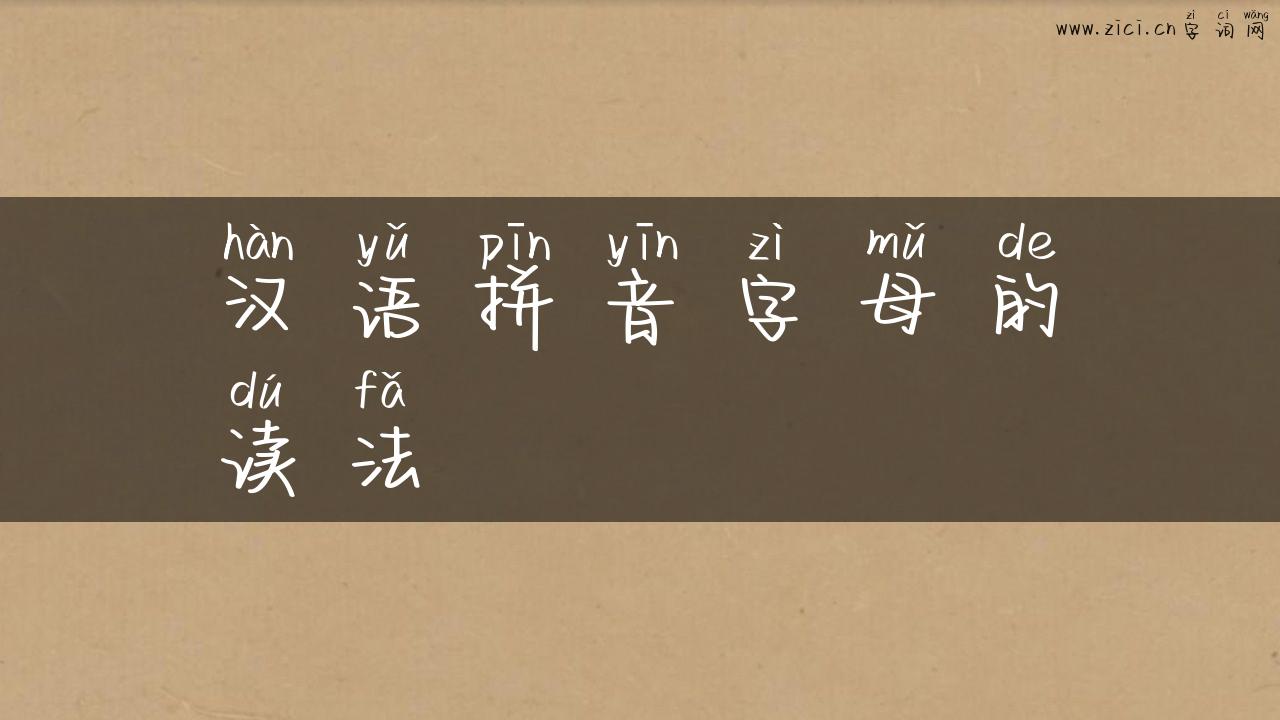 zì cí wǎng
www.zici.cn 字 词 网
hàn yǔ pīn yīn zì mǔ de
汉 语 拼 音 字 母 的
dú fǎ
读 法